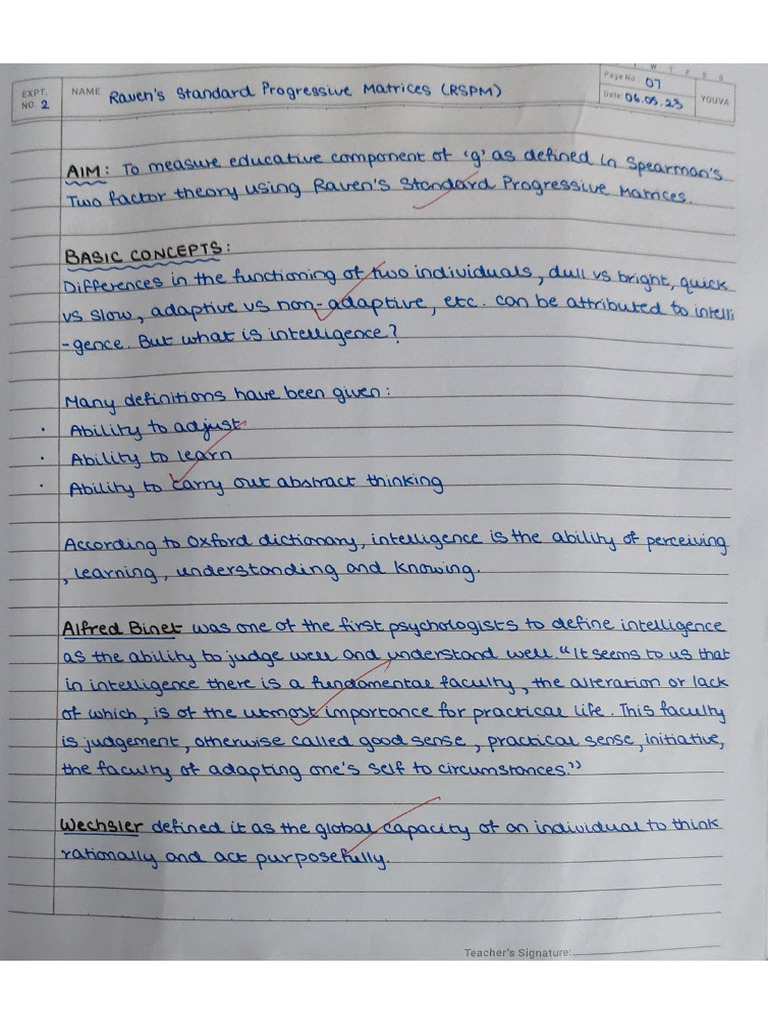 W T F S S
EXPT. NO. 2 NAME Raven's Standard Progressive Matrices (RSPM)
Page No.: 07
Date: 06.05.23
YOUVA
AIM: To measure educative component of 'g' as defined in Spearman's
Two factor theory using Raven's Standard Progressive Matrices.
BASIC CONCEPTS:
Differences in the functioning of two individuals, dull vs bright, quick
vs slow, adaptive vs non-adaptive, etc. can be attributed to intelli
-gence. But what is intelligence?
Many definitions have been given:
· Ability to adjust
· Ability to learn
· Ability to carry out abstract thinking
According to Oxford dictionary, intelligence is the ability of perceiving
, learning, understanding and knowing.
Alfred Binet was one of the first psychologists to define intelligence
as the ability to judge well and understand well. "It seems to us that
in intelligence there is a fundamental faculty, the alteration or lack
of which, is of the utmost importance for practical life. This faculty
is judgement, otherwise called good sense, practical sense, initiative,
the faculty of adapting one's self to circumstances."
Wechsler defined it as the global capacity of an individual to think
rationally and act purposefully.
Teacher's Signature: